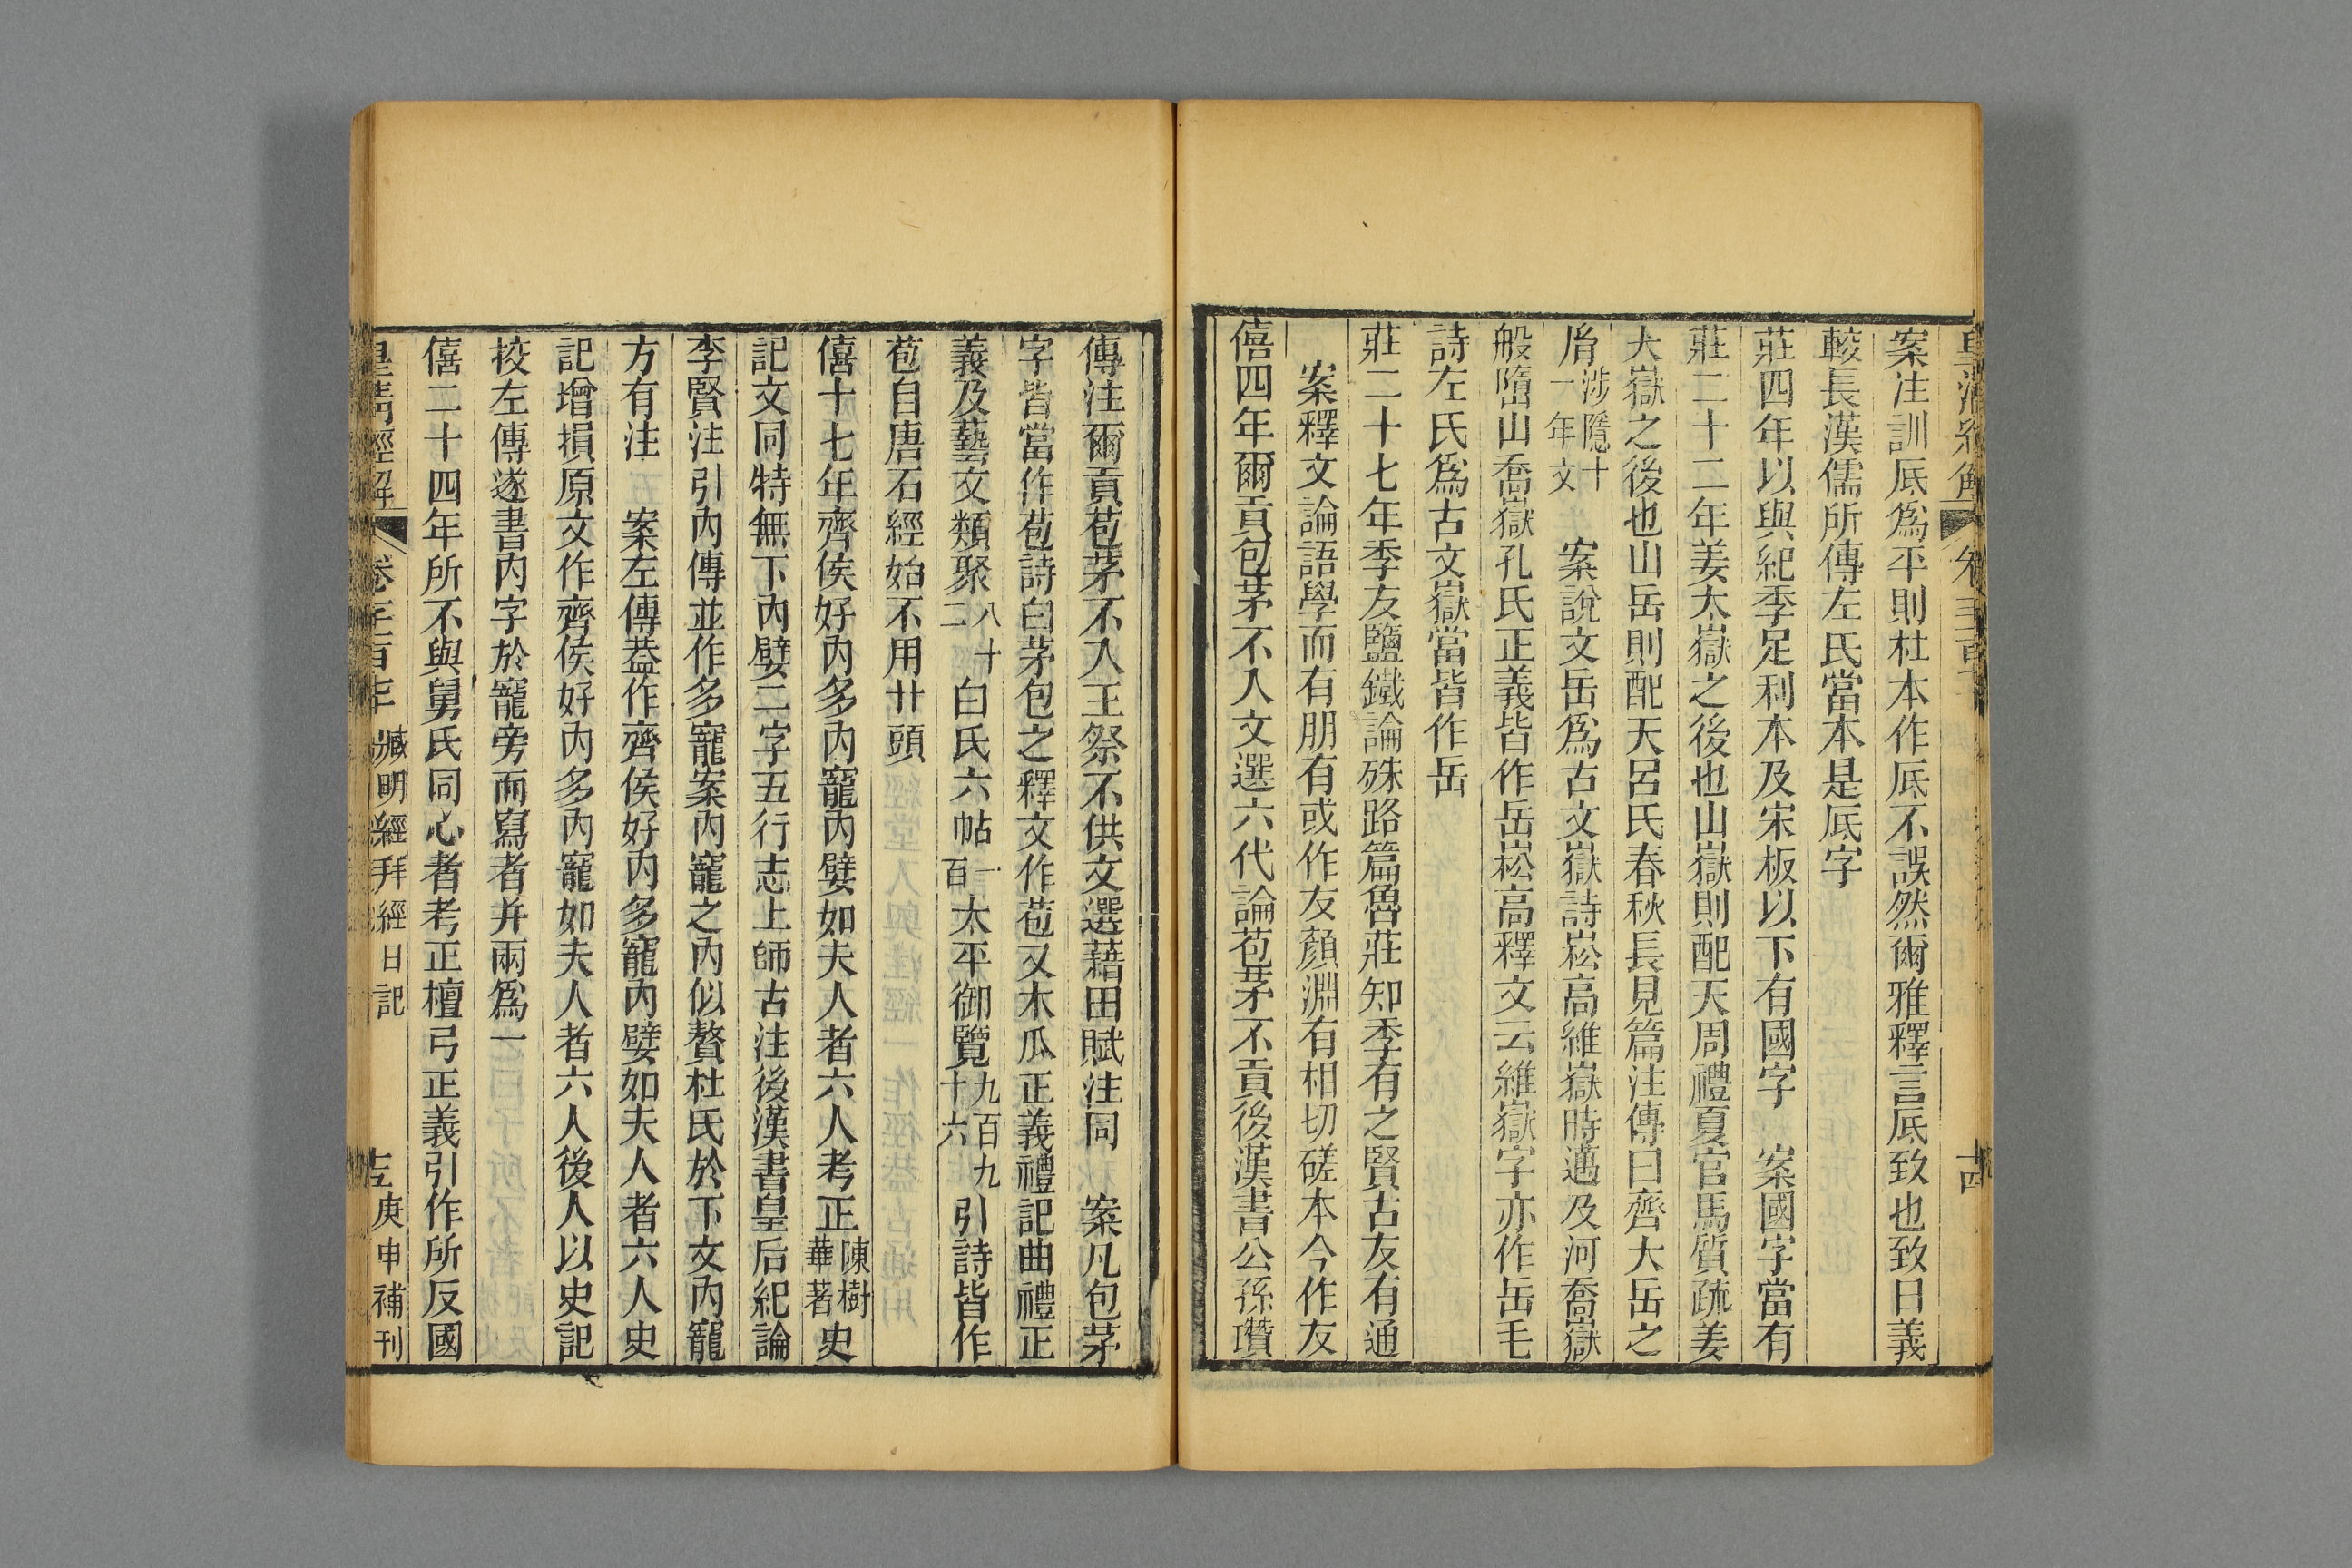 案注訓厎爲平則杜本作厎不誤然爾雅釋言厎致也致曰義
較長漢儒所傳左氏當本是厎字
莊四年以與紀季足利本及宋板以下有國字　案國字當有
莊二十二年姜太嶽之後也山嶽則配天周禮夏官馬質疏姜
大嶽之後也山岳則配天呂氏春秋長見篇注傳曰齊大岳之
胤涉隱十一年文　案說文岳爲古文嶽詩崧高維嶽時邁及河喬嶽
般嶞山喬嶽孔氏正義皆作岳崧高釋文云維嶽字亦作岳毛
詩左氏爲古文嶽當皆作岳
莊二十七年季友鹽鐵論殊路篇魯莊知季有之賢古友有通
案釋文論語學而有朋有或作友顏淵有相切磋本今作友
僖四年爾貢包茅不入文選六代論苞茅不貢後漢書公孫瓚
傳注爾貢苞茅不入王祭不供文選藉田賦注同　案凡包茅
字皆當作苞詩白茅包之釋文作苞又木瓜正義禮記曲禮正
義及藝文類聚八十二白氏六帖一百太平御覽九百九十六引詩皆作
苞自唐石經始不用廾頭
僖十七年齊侯好內多內寵內嬖如夫人者六人考正陳樹華著史
記文同特無下內嬖二字五行志上師古注後漢書皇后紀論
李賢注引內傳並作多寵案內寵之內似贅杜氏於下文內寵
方有注　案左傳葢作齊侯好內多寵內嬖如夫人者六人史
記增損原文作齊侯好內多內寵如夫人者六人後人以史記
挍左傳遂書內字於寵旁而寫者并兩爲一
僖二十四年所不與舅氏同心者考正檀弓正義引作所反國
皇淸經解　卷　臧明經拜經日記　庚申補刊